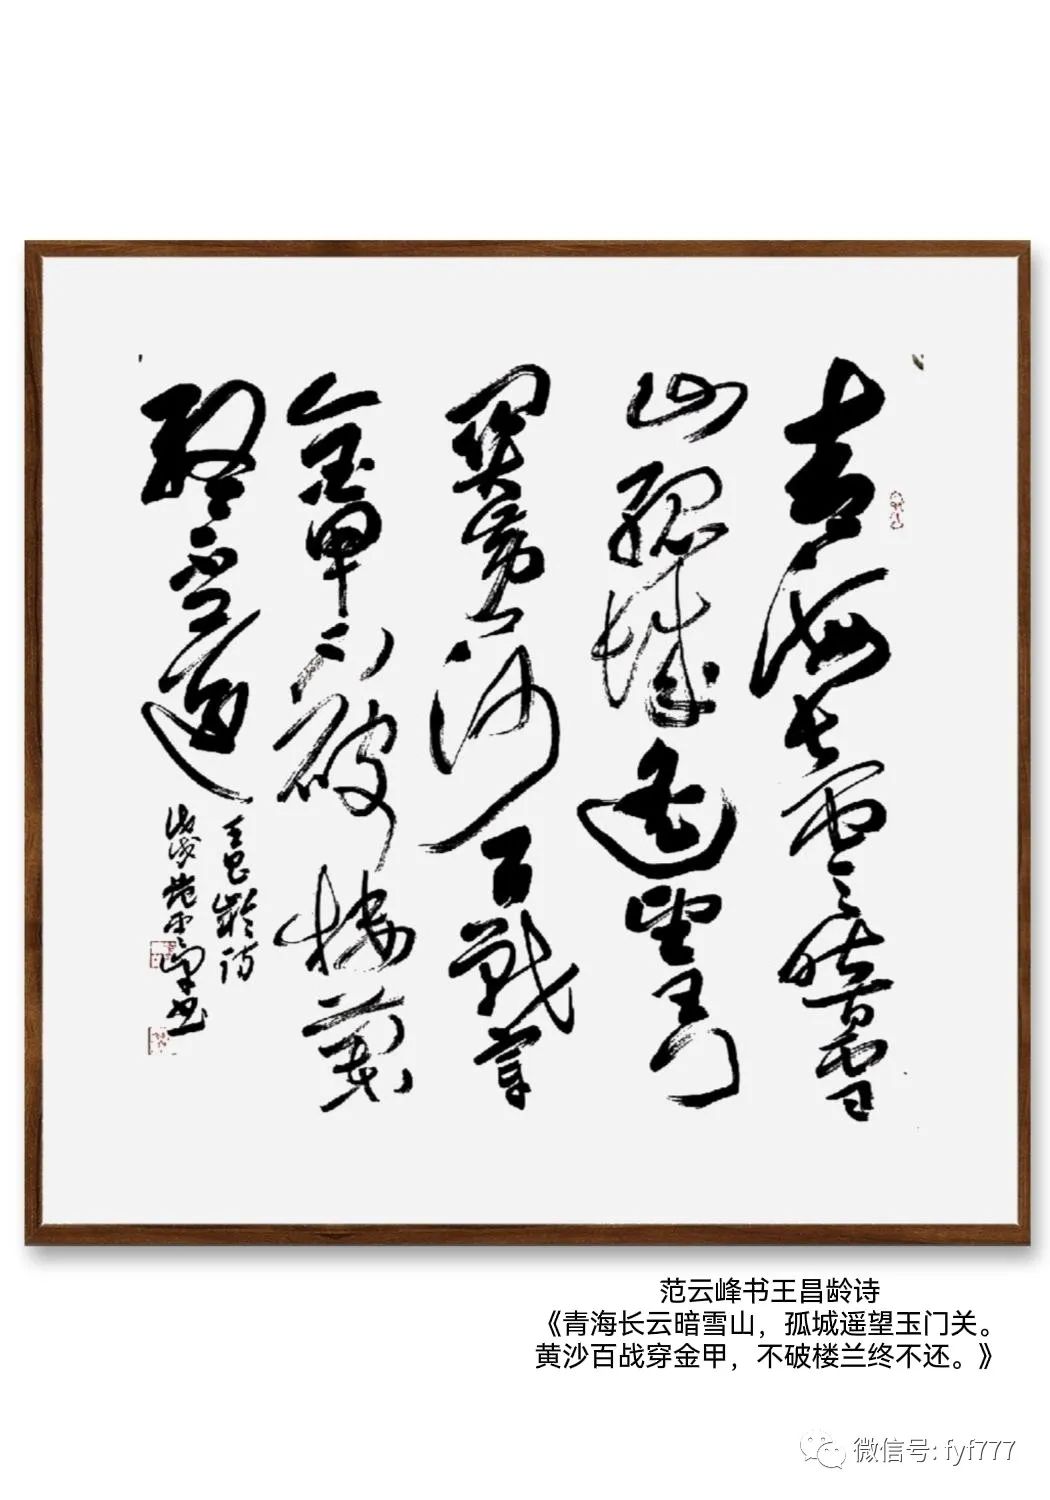 青海长雲暗雪
山孤城遥望玉门
関黄沙百戰穿
金甲不破楼蘭
终不还
王昌龄诗
范云峰书
范云峰书王昌龄诗
《青海长云暗雪山，孤城遥望玉门关。
黄沙百战穿金甲，不破楼兰终不还。》
微信号: fyf777